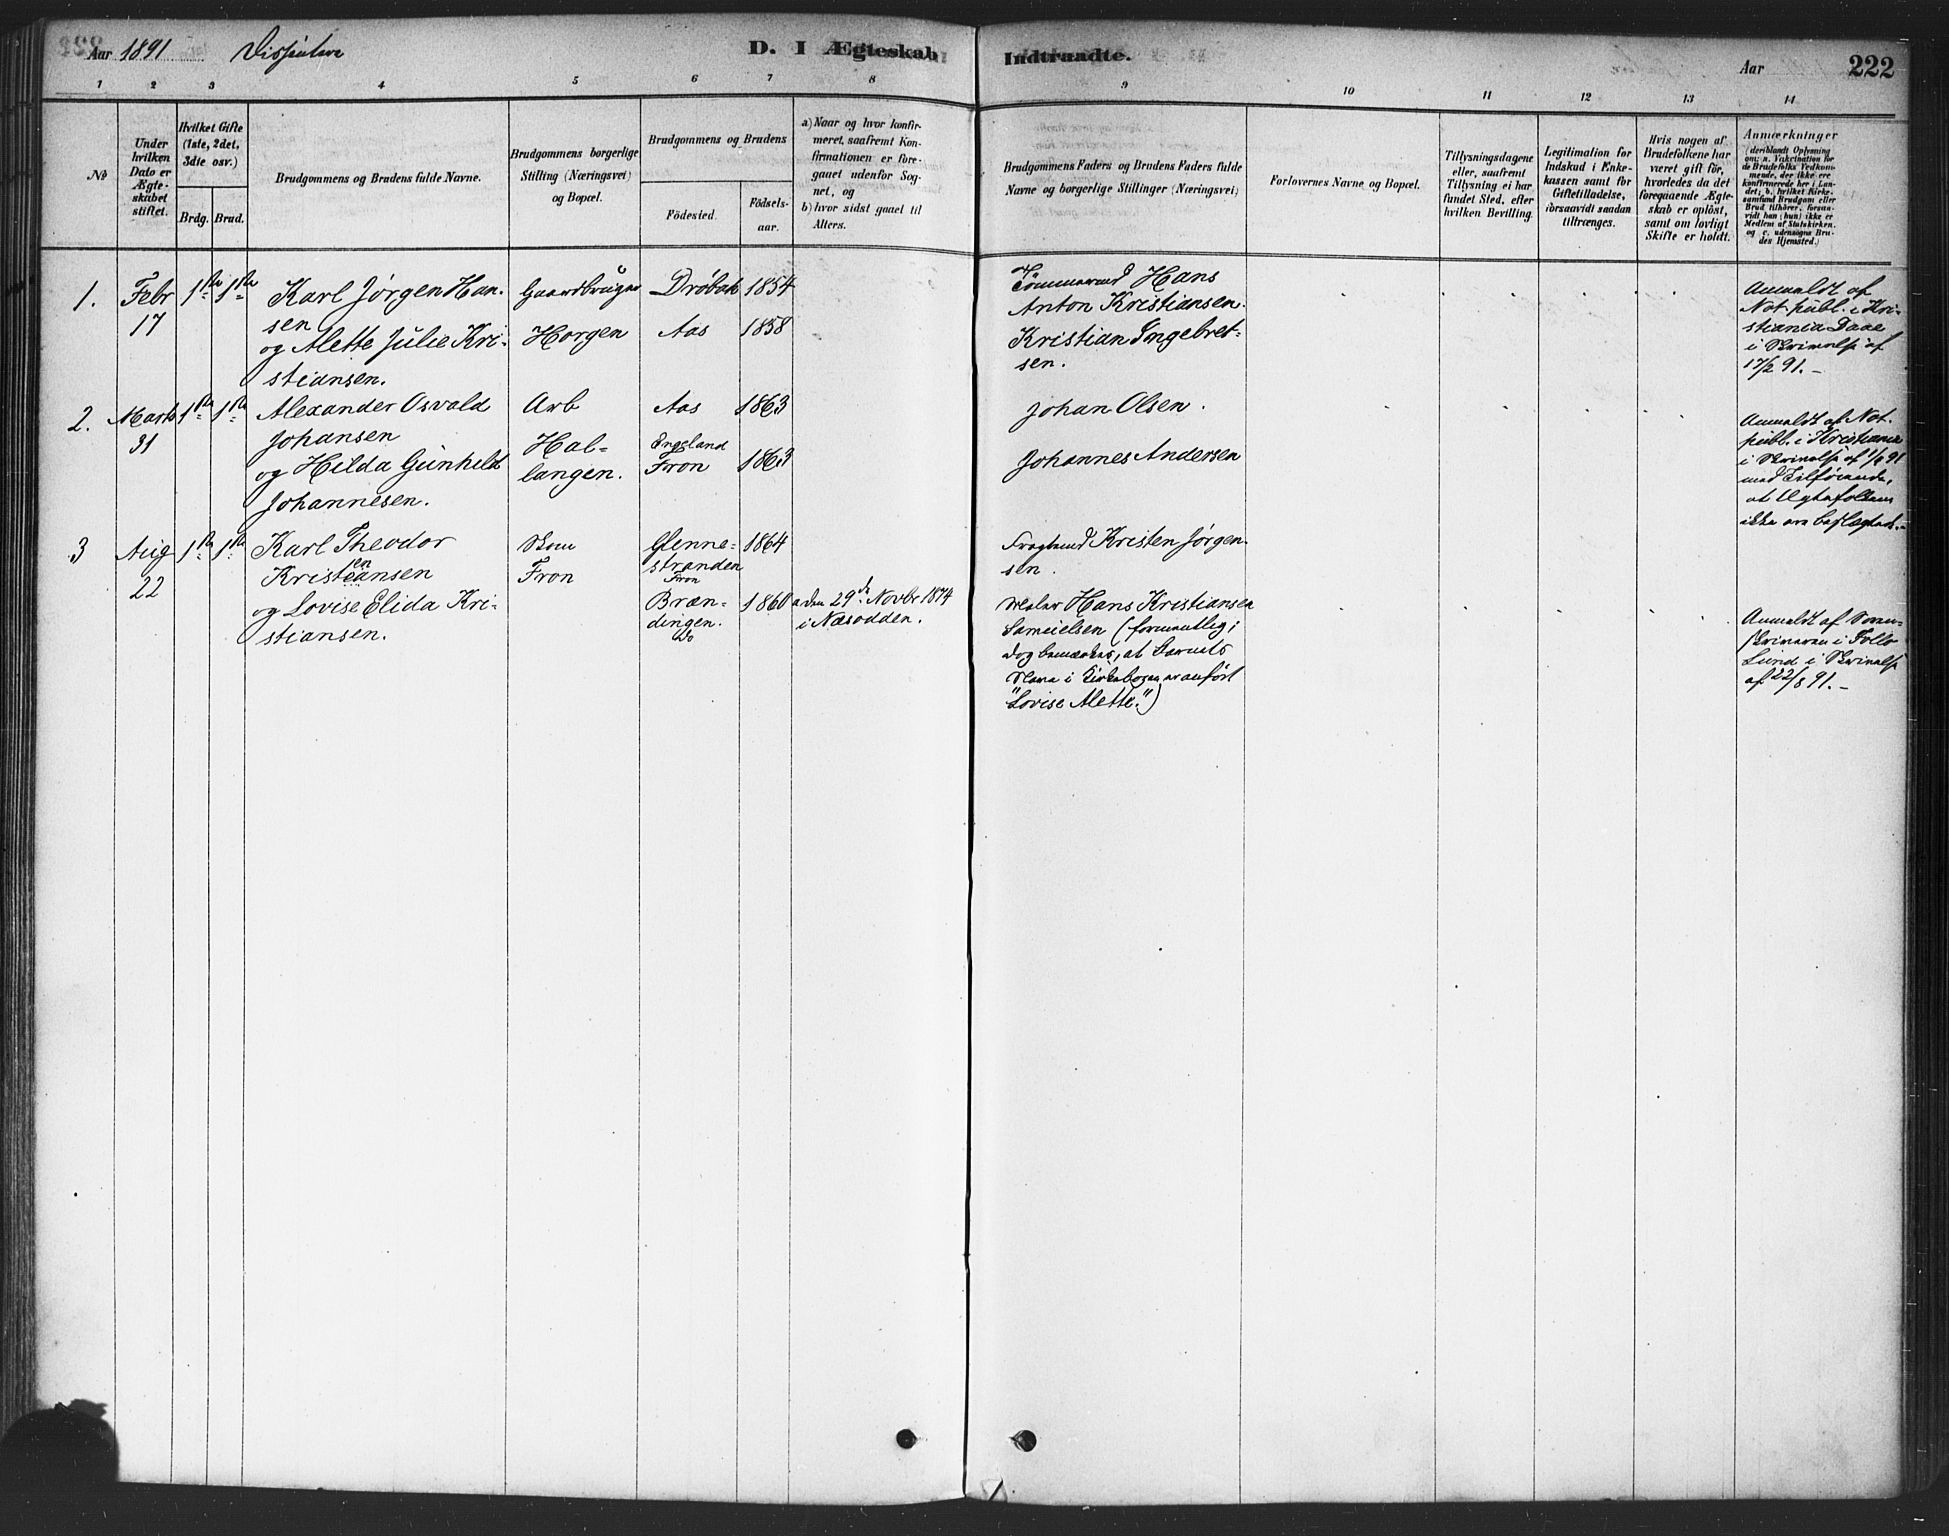 Aar 1891 Dissentere
D. I Ægteskab Indtraadte.
Aar 222
1 2 3 4 5 6 7 8 9 10 11 12 13 14
No
Under
hvilken
Dato er
Ægte-
skabet
stiftet.
Hvilket Gifte
(1ste, 2det,
3die osv.)
Brdg. Brud.
Brudgommens og Brudens fulde Navne.
Brudgommens borgerlige
Stilling (Næringsvei)
og Bopæl.
Brudgommens og Brudens
Födested.
Födsels-
aar.
a) Naar og hvor konfir-
meret, saafremt Kon-
firmationen er fore-
gaaet udenfor Sog-
net, og
b) hvor sidst gaaet til
Alters.
Brudgommens Faders og Brudens Faders fulde
Navne og borgerlige Stillinger (Næringsvei)
Forlovernes Navne og Bopæl.
Tillysningsdagene
eller, saafremt
Tillysning ei har
fundet Sted, efter
hvilken Bevilling.
Legitimation for
Indskud i Enke-
kassen samt for
Giftetilladelse,
forsaavidt saadan
tiltrænges.
Hvis nogen af
Brudefolkene har
været gift för,
hvorledes da det
foregaaende Ægte-
skab er oplöst,
samt om lovligt
Skifte er holdt.
Anmærkninger
(deriblandt Oplysning
om: a. Vakcination for
de Brudefolks Vedkom-
mende, der ikke ere
konfirmerede her i Lan-
det; b. hvilket Kirke-
samfund Brudgom eller
Brud tilhörer, forsaa-
vidt han (hun) ikke er
Medlem af Statskirken,
og c. udensogns Bru-
des Hjemsted.)
1.
Febr
17
1ste 1ste
Karl Jørgen Han-
sen
og Alette Julie Kri-
stiansen.
Gaardbruger
Horgen
Drøbak 1854
Aas 1858
Tømmermd Hans
Anton Kristiansen.
Kristian Ingebret-
sen.
Anmeldt af
Not. publ. i Kri-
stiania Daae
i Skrivelse af
17/2 91.-
2.
Marts
31
1ste 1ste
Alexander Osvald
Johansen
og Hilda Gunhild
Johannesen.
Arb
Hal-
langen.
Aas 1863
Engeland
Fron 1863
Johan Olsen.
Johannes Andersen
Anmeldt af Not.
publ. i Kristiania
i Skrivelse af
med Tilføiende,
at Egtefolkene
ikke ere beslegtede.-
3
Aug
22
1ste 1ste
Karl Theodor
en
Kristiansen
og Lovise Elida Kri-
stiansen.
Skom
Fron
Glenne-
stranden
Fron
1864
Bræn-
dingen.
do
1860
a. den 29de Novbr 1874
i Næsodden.
Fragtmd Kristen Jørgen-
sen.
Hans Kristiansen
Samuelsen (formentlig;
dog bemærkes, at Barnets
Navn i Kirkebogen er anført
"Lovise Alette.")
Anmeldt af Soren-
skriveren i Follo
Lund i Skrivelse
af 22/8 91.-